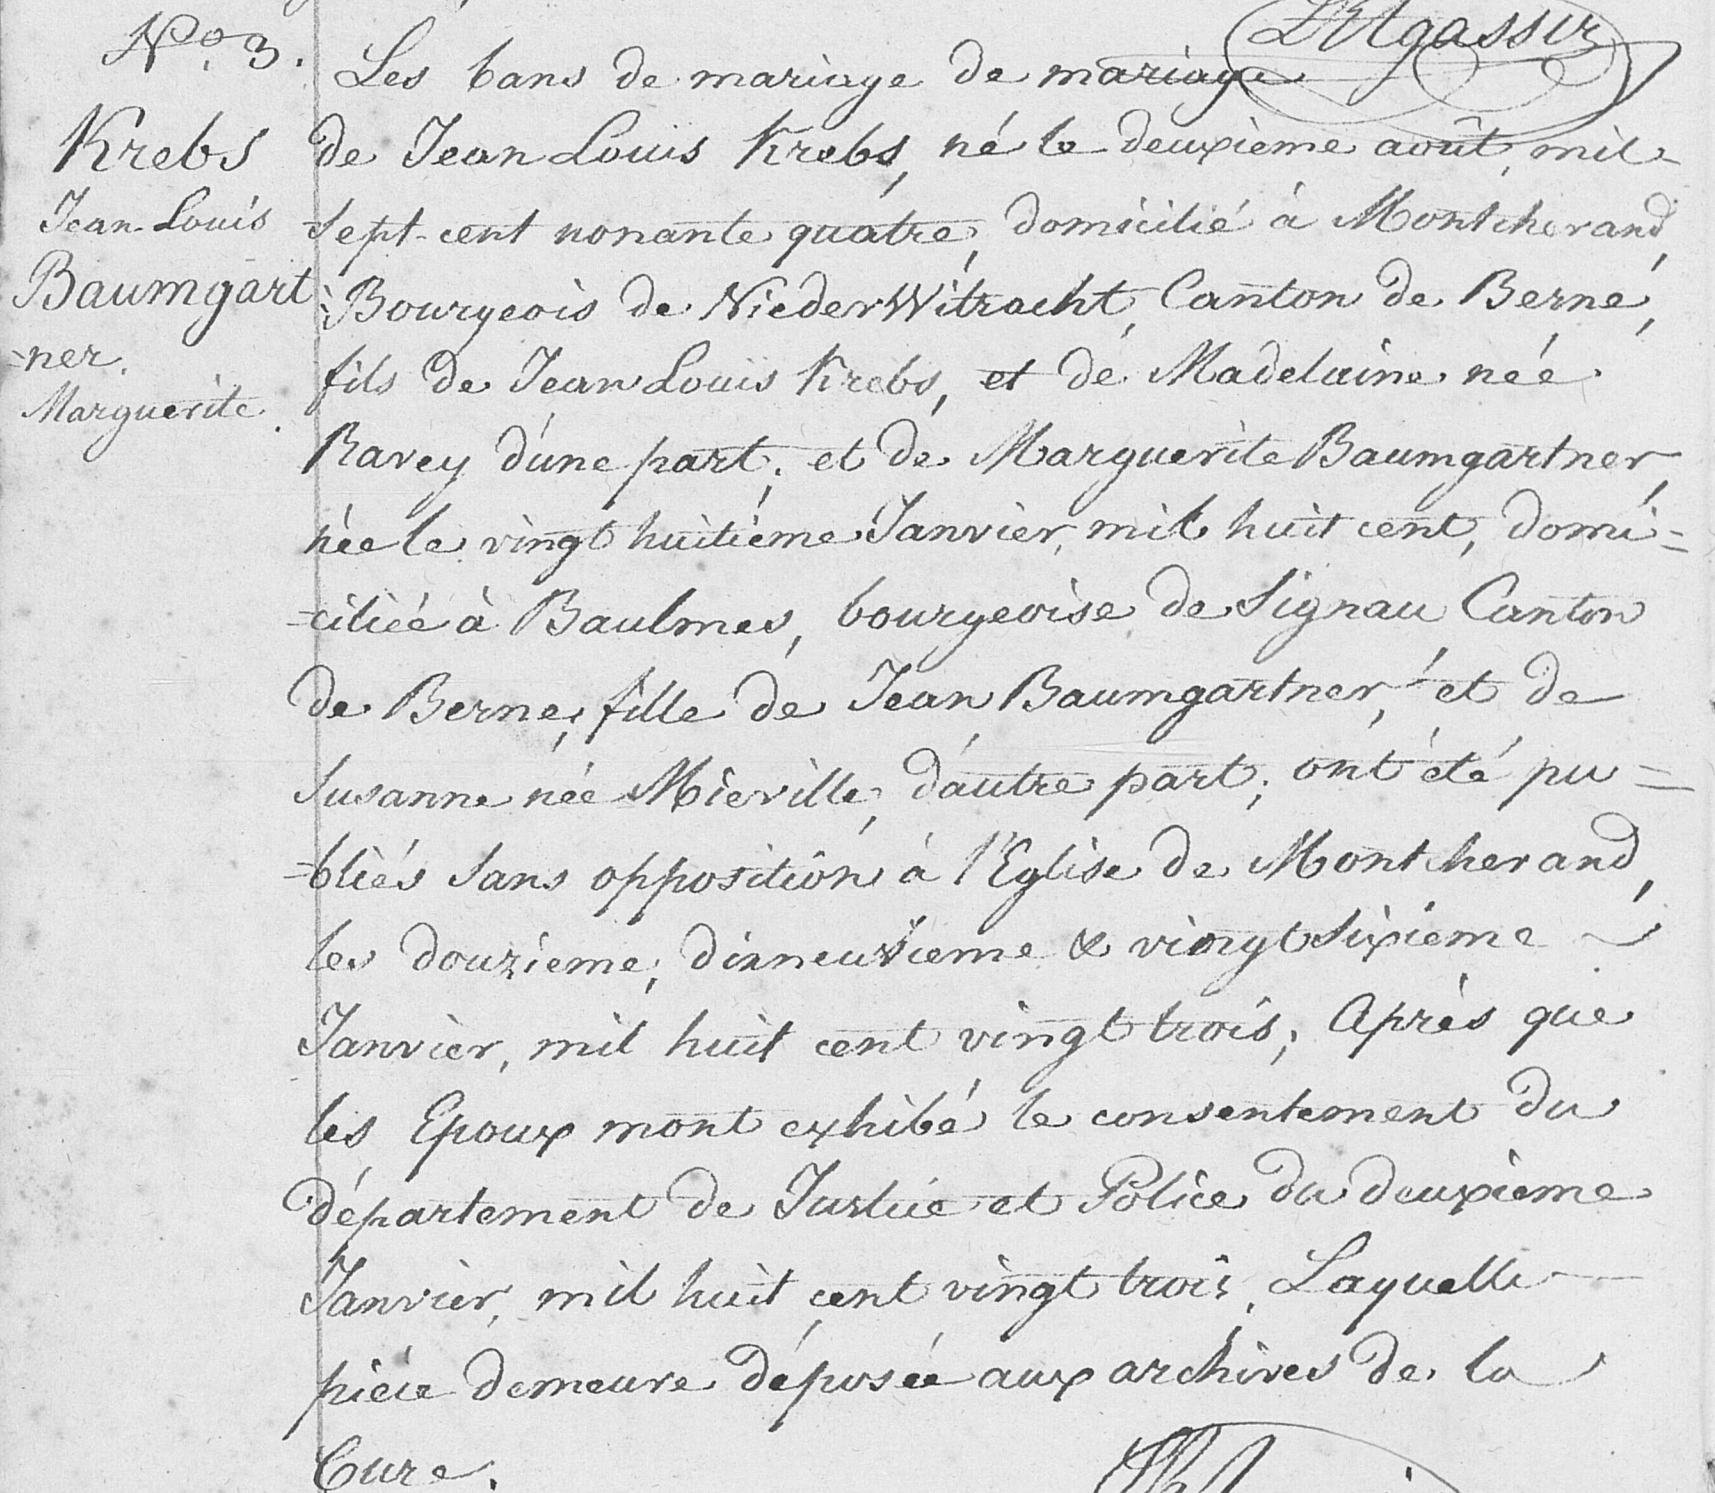 No. 3.
Krebs
Jean-Louis
Baumgart
=ner.
Marguerite.
Les bans de mariage de mariage
de Jean Louis Krebs, né le deuxième août, mil
sept-cent nonante quatre, domicilié à Montcherand,
Bourgeois de NiederWitracht, Canton de Berne,
fils de Jean Louis Krebs, et de Madelaine née
Ravey d'une part; et de Marguerite Baumgartner,
née le vingt huitième Janvier, mil huit cent, domi=
=ciliée à Baulmes, bourgeoise de Signau, Canton
de Berne, fille de Jean Baumgartner, et de
Susanne née Mieville, d'autre part; ont été pu=
=bliés sans opposition à l'Eglise de Montcherand,
les douzieme, dixneuvieme & vingt sixieme
Janvier, mil huit cent vingt trois; Après que
les Epoux mont exhibé le consentement du
département de Justice et Police du deuxième
Janvier, mil huit cent vingt trois, Laquelle
pièce demeure déposée aux archives de la
Cure.